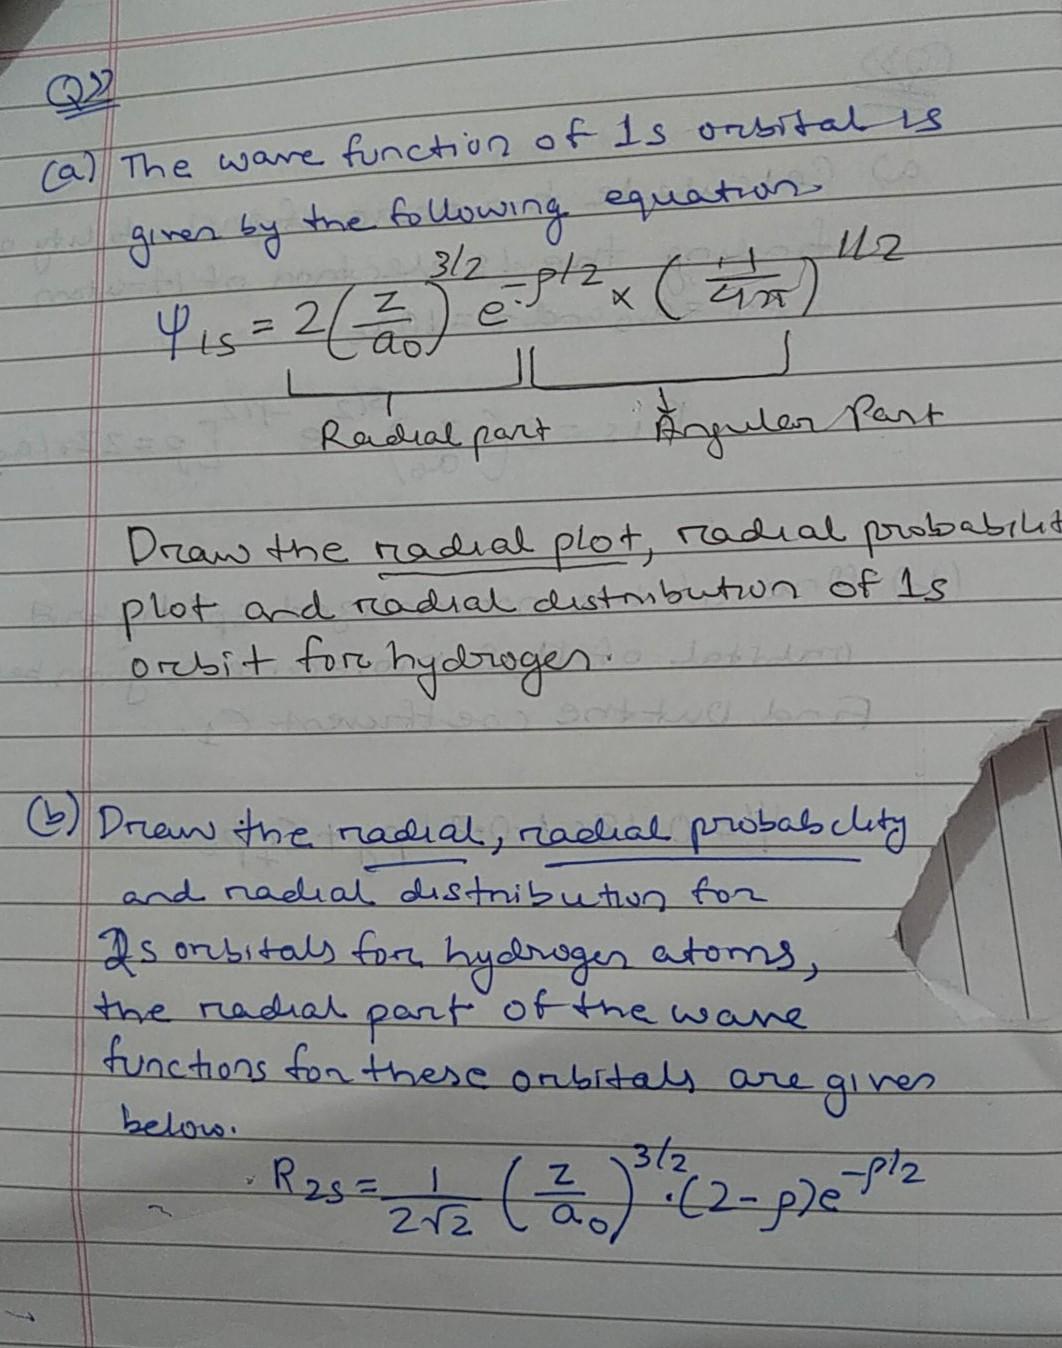 Q2)
(a) The wave function of 1s orbital is
given by the following equation.
ψ1s = 2(Z/a0)^3/2 e^-ρ/2 × (1/4π)^1/2
Radial part Angular Part
Draw the radial plot, radial probabilit
plot and radial distribution of 1s
orbit for hydrogen.
(b) Draw the radial, radial probability
and radial distribution for
2s orbitals for hydrogen atoms,
the radial part of the wave
functions for these orbitals are given
below.
R2s = 1/2√2 (Z/a0)^3/2 . (2-ρ)e^-ρ/2